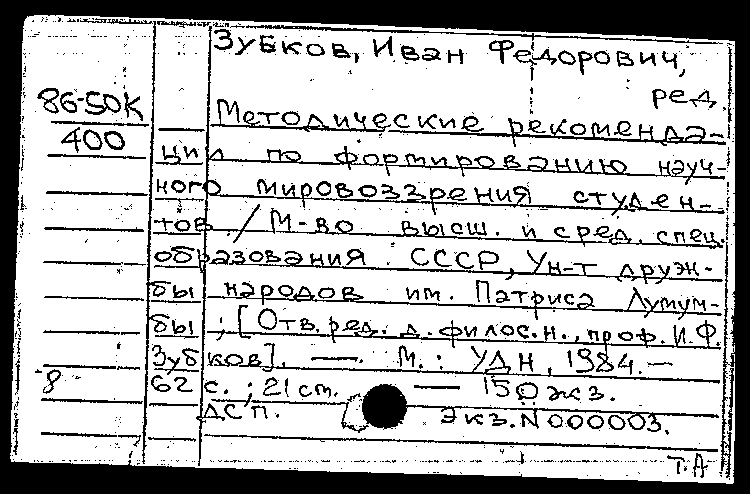 Зубков, Иван Федорович,
ред.
86-50К
400
Методические рекоменда-
ции по формированию науч-
ного мировоззрения студен-
тов / М-во высш. и сред. спец.
образования СССР, Ун-т друж-
бы народов им. Патриса Лумум-
бы ; [Отв. ред. д. филос. н., проф. И.Ф.
Зубков]. — М. : УДН, 1984. —
8
62 с. ; 21 см. — 150 экз.
ДСП. Экз. N 000003.
Т.А